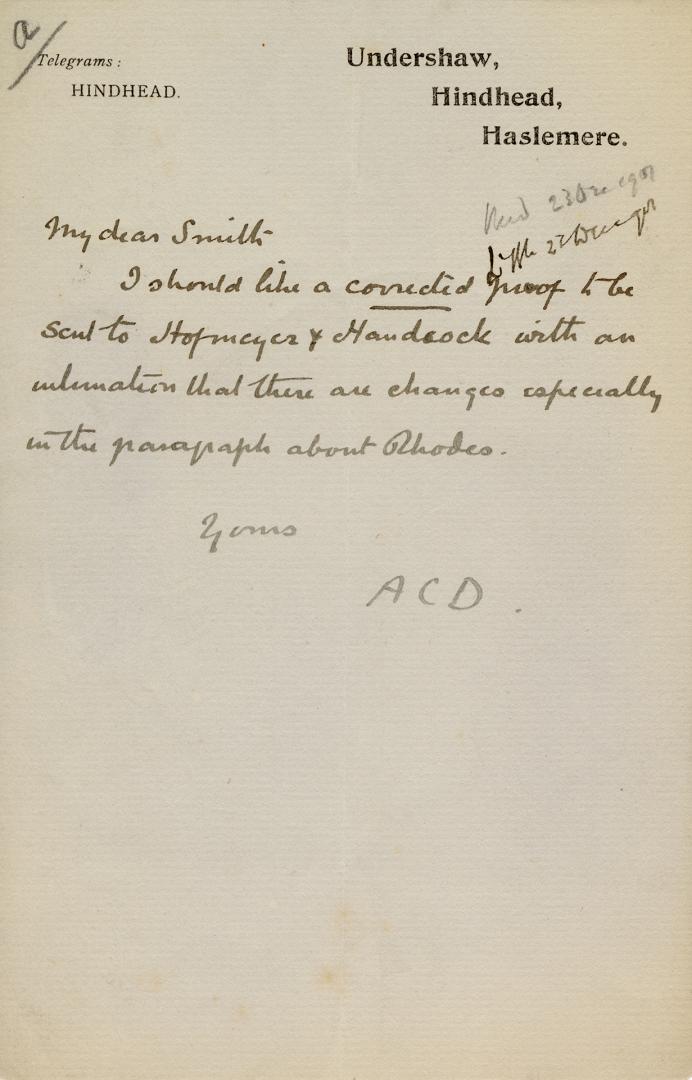 a/
Telegrams:
HINDHEAD.
Undershaw,
Hindhead,
Haslemere.
Recd 23 Dec 1901
23 Dec 1901
My dear Smith
I should like a corrected proof to be
sent to Hofmeyer & Handcock with an
intimation that there are changes especially
in the paragraph about Rhodes.
Yours
ACD.